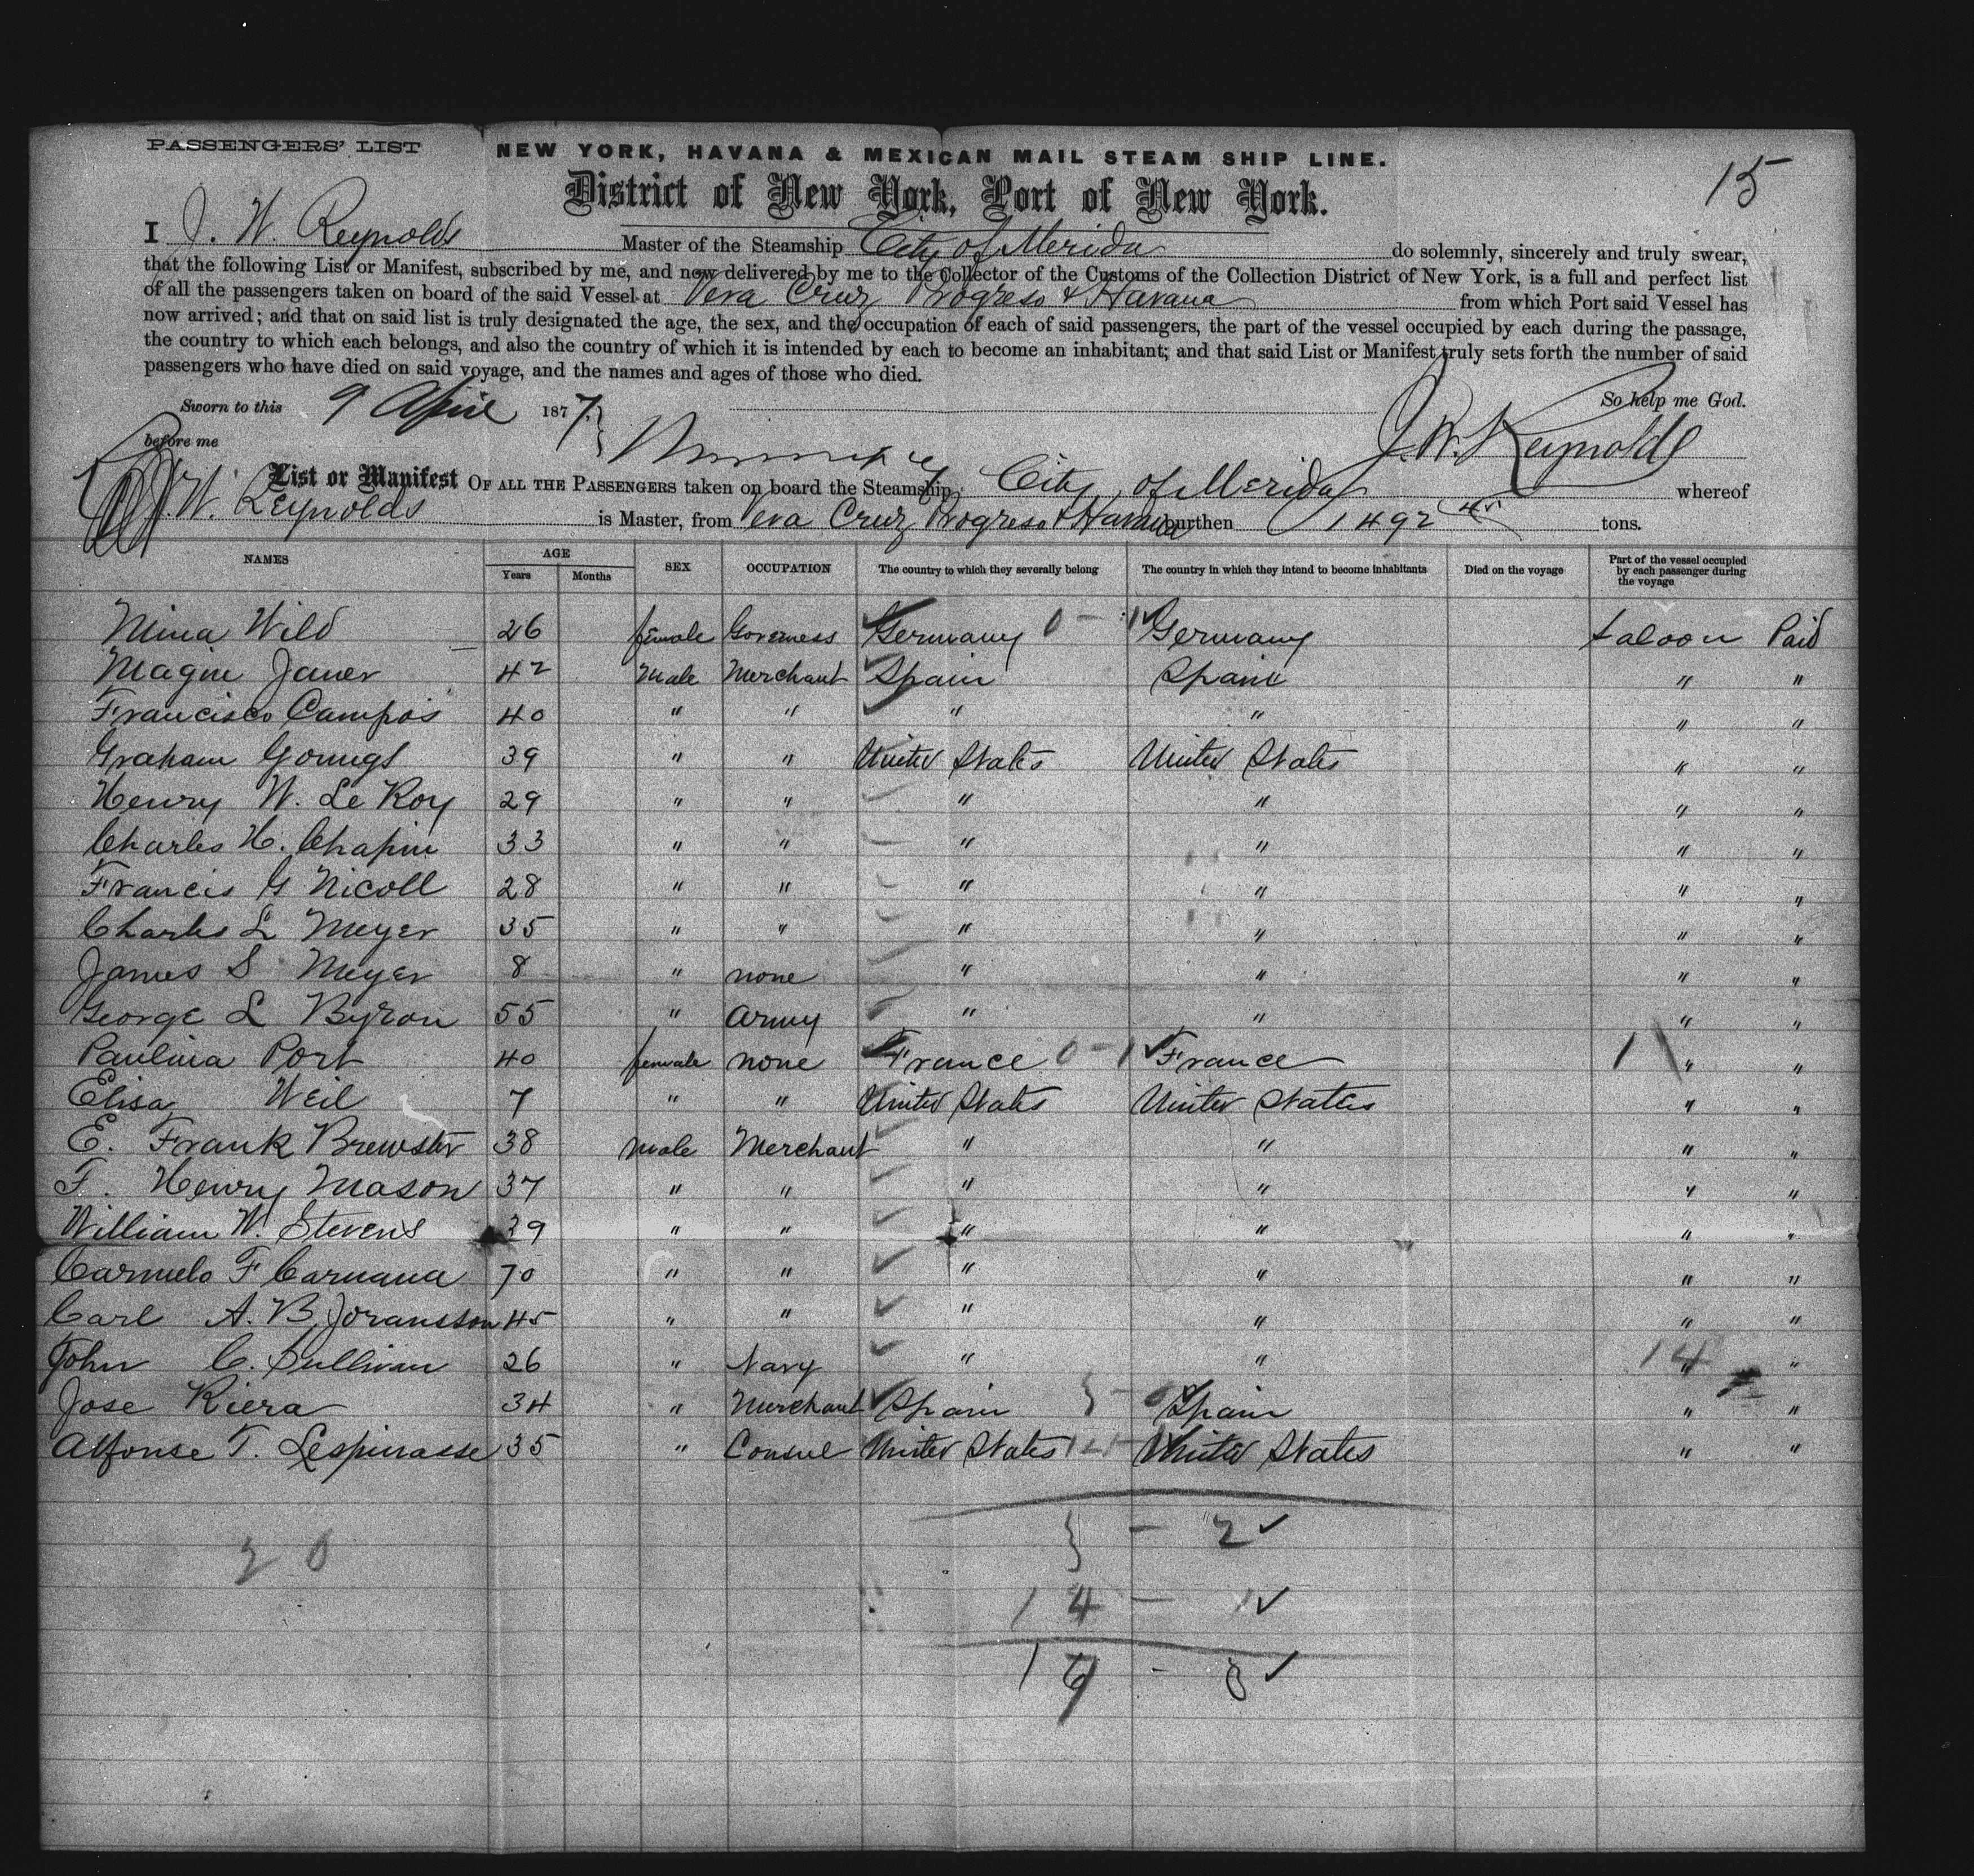 PASSENGERS' LIST
NEW YORK, HAVANA & MEXICAN MAIL STEAM SHIP LINE.
15
District of New York, Port of New York.
I J. W. Reynolds Master of the Steamship City of Merida do solemnly, sincerely and truly swear,
that the following List or Manifest, subscribed by me, and now delivered by me to the Collector of the Customs of the Collection District of New York, is a full and perfect list
of all the passengers taken on board of the said Vessel at Vera Cruz Progreso & Havana from which Port said Vessel has
now arrived; and that on said list is truly designated the age, the sex, and the occupation of each of said passengers, the part of the vessel occupied by each during the passage,
the country to which each belongs, and also the country of which it is intended by each to become an inhabitant; and that said List or Manifest truly sets forth the number of said
passengers who have died on said voyage, and the names and ages of those who died.
Sworn to this 9 April 1877 So help me God.
before me J. W. Reynolds
List or Manifest OF ALL THE PASSENGERS taken on board the Steamship City of Merida whereof
J. W. Reynolds is Master, from Vera Cruz Progreso & Havana burthen 1492 tons.
NAMES AGE Years Months SEX OCCUPATION The country to which they severally belong The country in which they intend to become inhabitants Died on the voyage Part of the vessel occupied by each passenger during the voyage
Nina Wild 26 female Governess Germany 0 - 1 Germany Saloon Paid
Magin Janer 42 Male Merchant Spain Spain " "
Francisco Campos 40 " " " " " "
Graham Youngs 39 " " United States United States " "
Henry W. Le Roy 29 " " " " " "
Charles H. Chapin 33 " " " " " "
Francis G Nicoll 28 " " " " " "
Charles L Meyer 35 " " " " " "
James S Meyer 8 " none " " " "
George L Byron 55 " Army " " " "
Paulina Port 40 female none France 0 - 1 France 1 " "
Elisa Weil 7 " " United States United States " "
E. Frank Brewster 38 male Merchant " " " "
F. Henry Mason 37 " " " " " "
William W. Stevens 39 " " " " " "
Carmelo F Caruana 70 " " " " " "
Carl A. B. Joransson 45 " " " " " "
John C. Sullivan 26 " Navy " " 14 " "
Jose Riera 34 " Merchant Spain Spain " "
Alfonse T. Lespinasse 35 " Consul United States United States " "
20
3 - 2
14 - 1